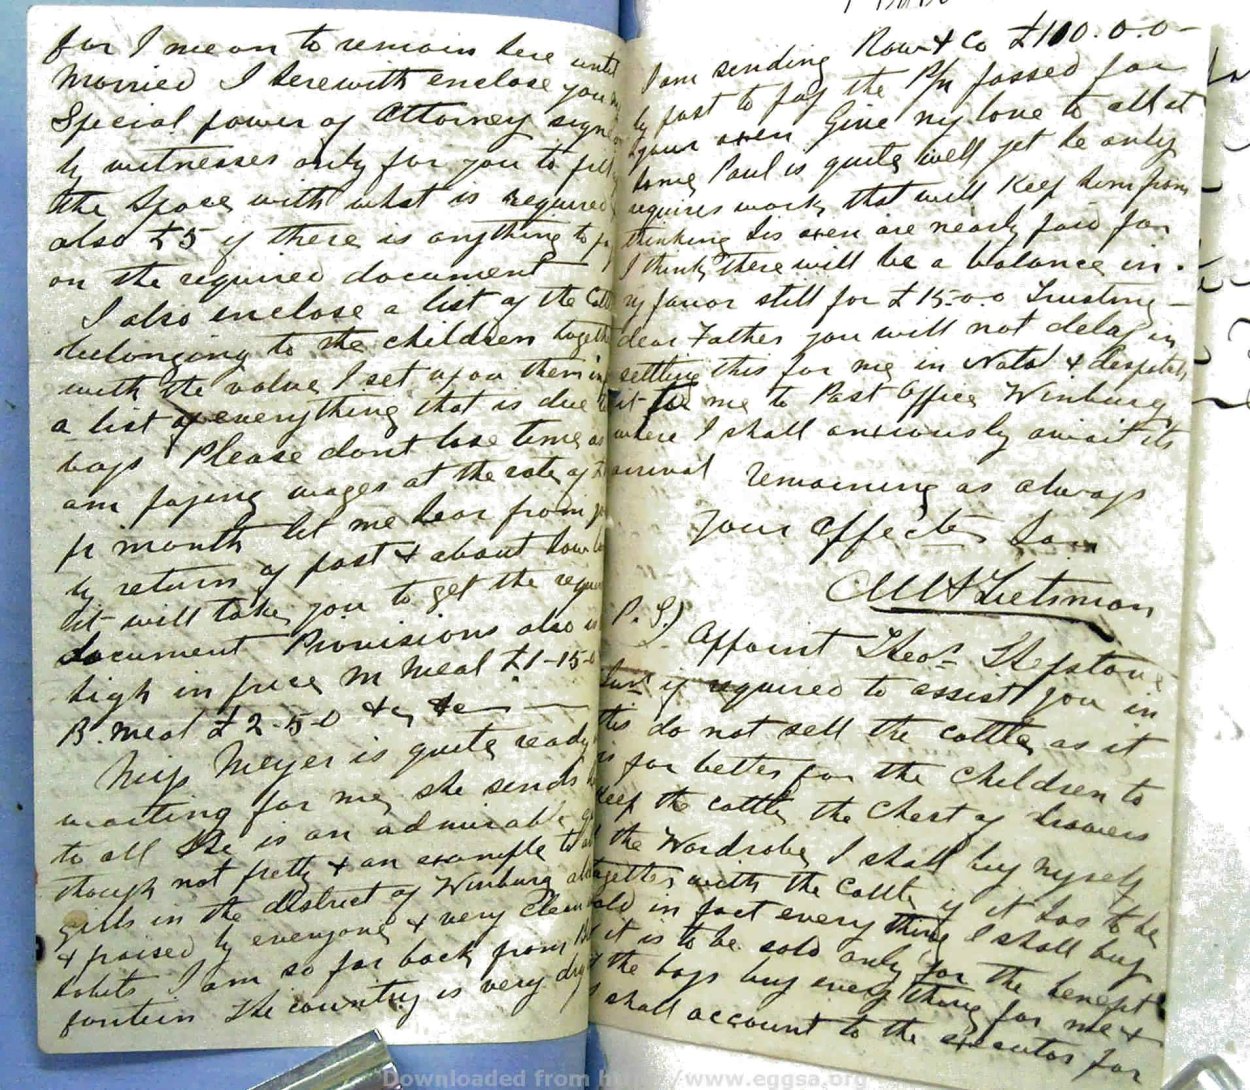 for I mean to remain here until
married I herewith enclose you my
Special power of Attorney signed
by witnesses only for you to fill
the Space with what is required
also £5 if there is anything to pay
on the required document
I also enclose a list of the
belonging to the children together
with the value I set upon them
a list of everything that is due
boys Please dont lose time as
am paying wages at the rate of
pr month let me hear from
by return of post & about how
it will take you to get the
document Provisions also
high in price M Meal £1-15-0
B. Meal £2-5-0
Miss Meyer is quite ready
waiting for me she sends
to all She is an admirable
though not pretty & an example to all
girls in the district of Winburg
& praised by everyone & very clean
habits I am so far back from
fontein The country is very dry
Row & Co £100.0.0-
I am sending
by post to pay the P/N passed for
your oxen Give my love to all at
home Paul is quite well yet he only
requires work that will Keep him from
thinking his oxen are nearly paid for
I think there will be a balance in
my favor still for £15-0.0 Trusting
dear Father you will not delay in
settling this for me in Natal & despatch
it for me to Post Office Winburg
where I shall anxiously await its
arrival remaining as always
Your affecte Son
Lietsman
P.S.) I appoint Theos. Shepstone
Junr if required to assist you in
this do not sell the cattle as it
is far better for the Children to
Keep the cattle the Chest of drawers
the Wardrobe I shall buy myself
together with the Cattle if it has to be
sold in fact every thing I shall buy
if it is to be sold only for the benefit
of the boys buy every thing for me &
I shall account to the executor for
Downloaded from http://www.eggsa.org